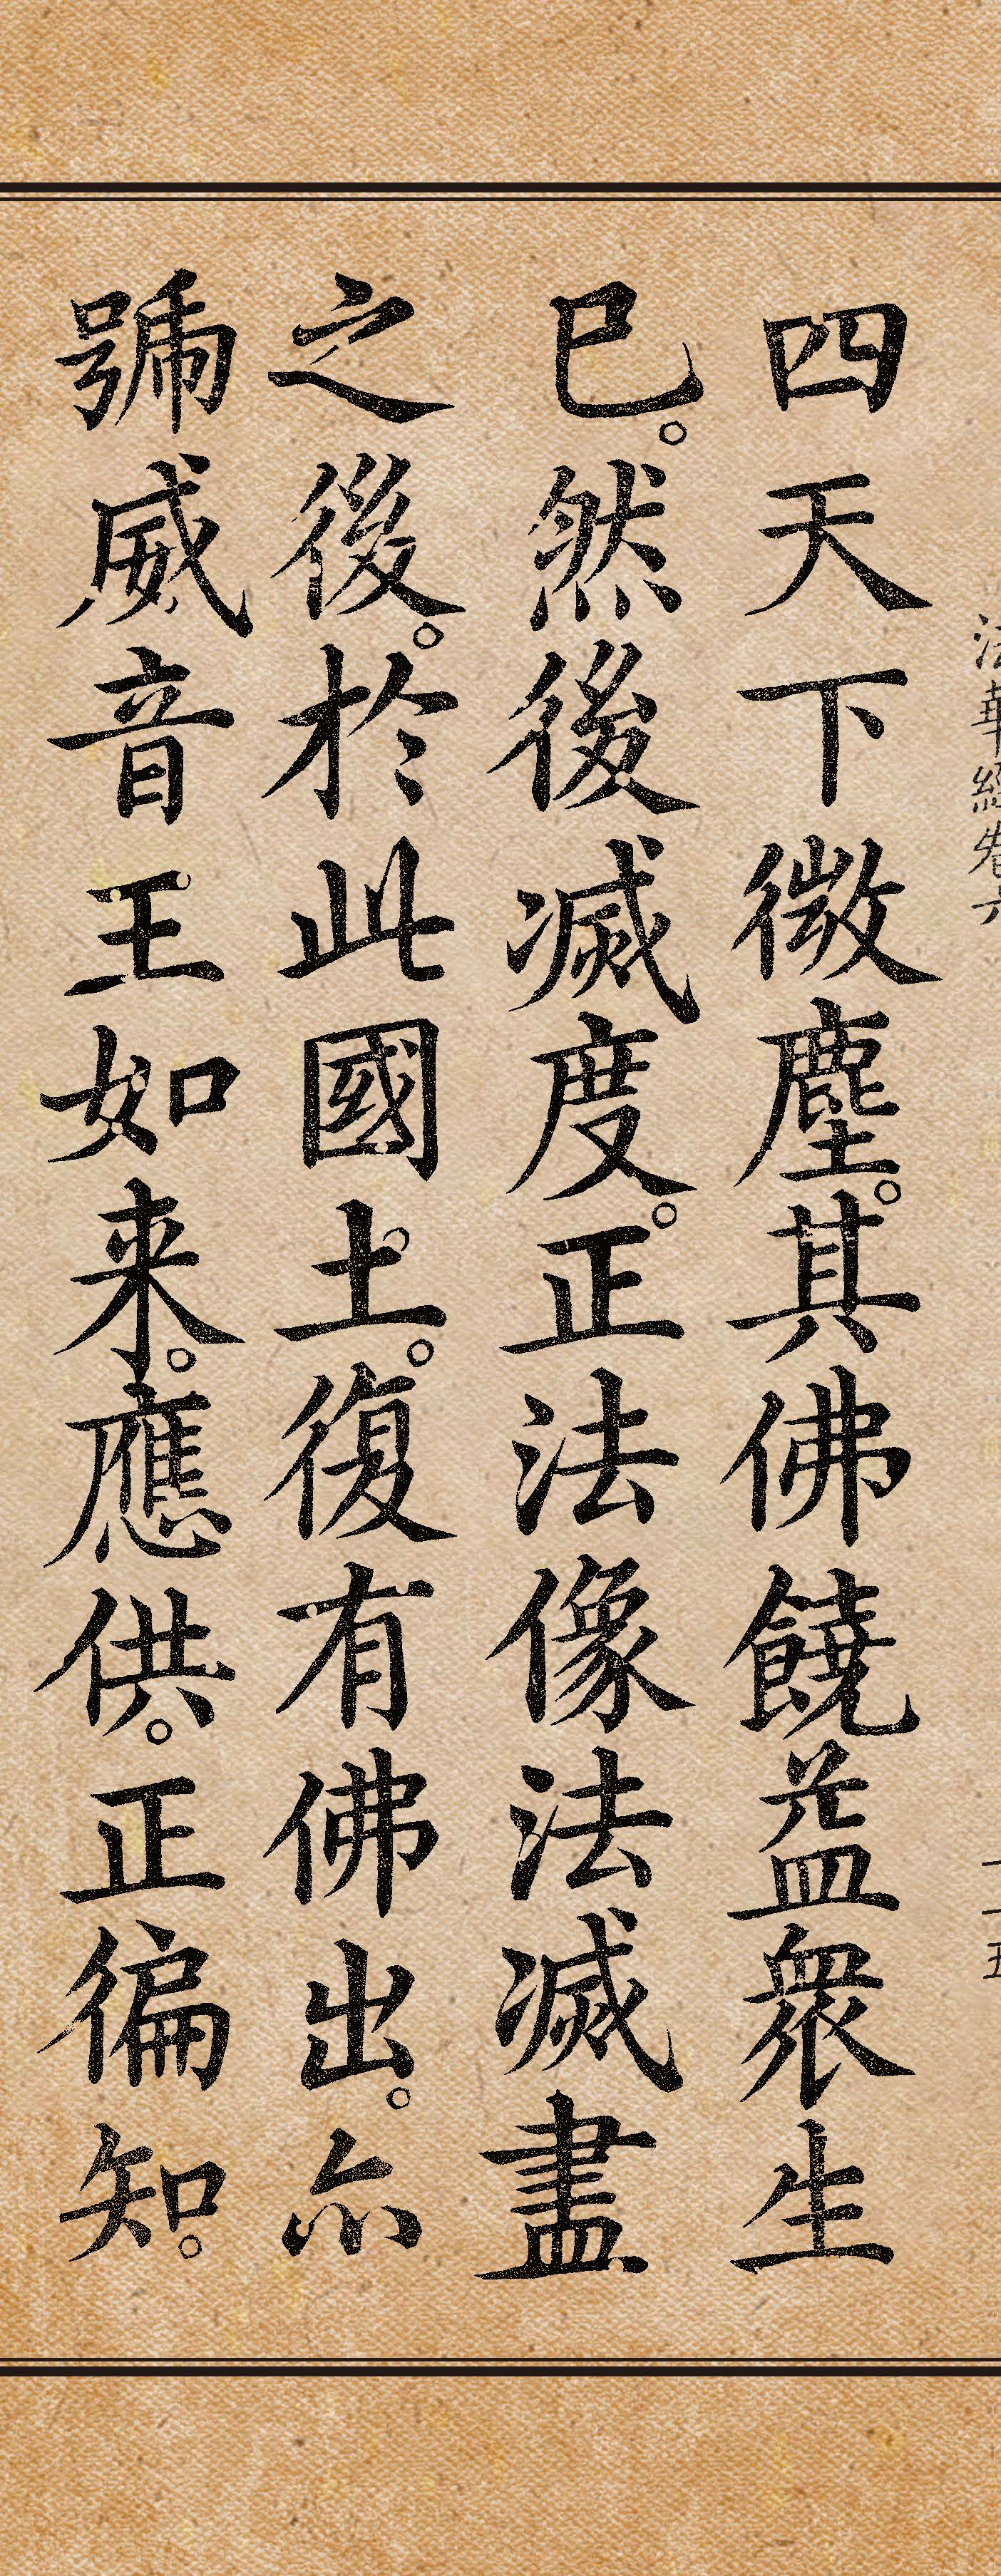 法華經卷六
二十五
四天下微塵。其佛饒益眾生
已。然後滅度。正法像法滅盡
之後。於此國土。復有佛出。亦
號威音王如来。應供。正徧知。